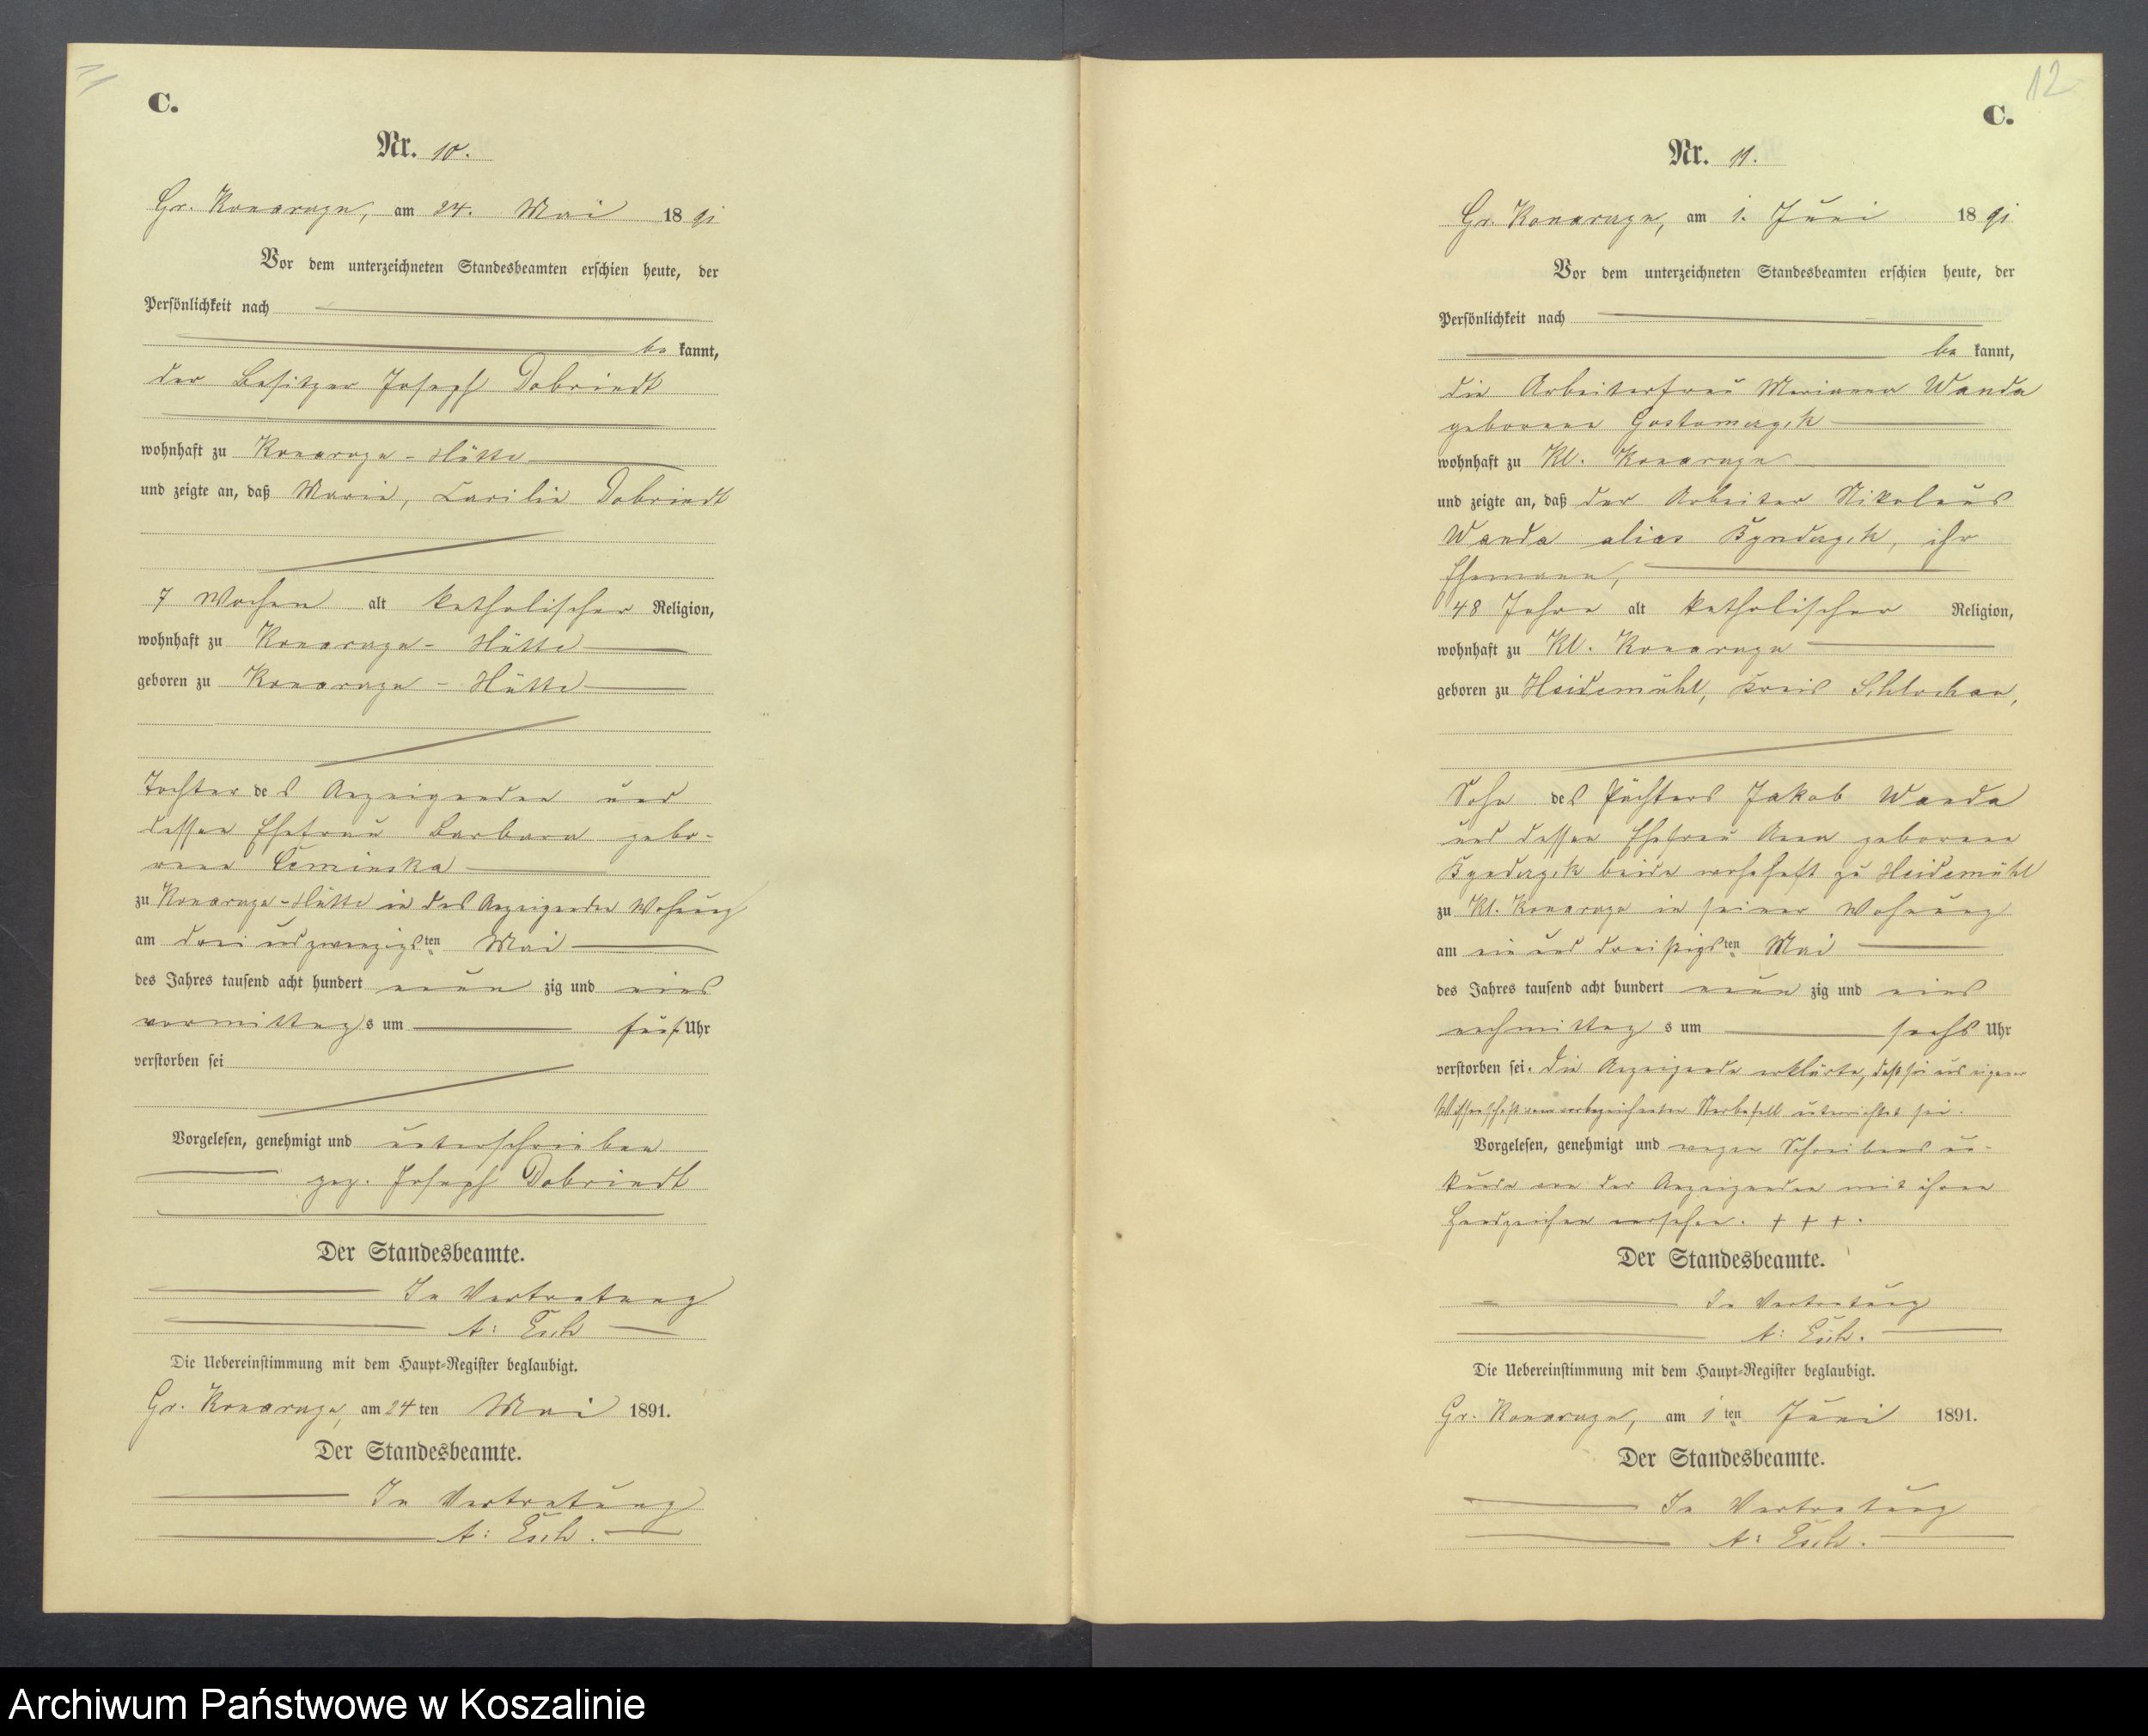 11
C.
Nr. 10.
Gr. Konarzyn, am 24. Mai 1891
Vor dem unterzeichneten Standesbeamten erschien heute, der
Persönlichkeit nach
be kannt,
der Besitzer Joseph Dobrindt
wohnhaft zu Konarzyn-Hütte
und zeigte an, daß Marie, Cecilie Dobrindt
7 Wochen alt katholischer Religion,
wohnhaft zu Konarzyn-Hütte
geboren zu Konarzyn-Hütte
Tochter des Anzeigenden und
dessen Ehefrau Barbara gebo-
rene
zu Konarzyn-Hütte in des Anzeigenden Wohnung
am drei und zwanzigsten Mai
des Jahres tausend acht hundert neun zig und eins
vormittags um fünf Uhr
verstorben sei
Vorgelesen, genehmigt und unterschrieben
gez. Joseph Dobrindt
Der Standesbeamte.
In Vertretung
A: Esch
Die Uebereinstimmung mit dem Haupt-Register beglaubigt.
Gr. Konarzyn, am 24 ten Mai 1891.
Der Standesbeamte.
In Vertretung
A: Esch.
12
C.
Nr. 11.
Gr. Konarzyn, am 1. Juni 1891
Vor dem unterzeichneten Standesbeamten erschien heute, der
Persönlichkeit nach
be kannt,
die Arbeiterfrau Marianna Wanda
geborene
wohnhaft zu Kl. Konarzyn
und zeigte an, daß der Arbeiter Nikolaus
Wanda alias ihr
Ehemann,
48 Jahre alt katholischer Religion,
wohnhaft zu Kl. Konarzyn
geboren zu Heidemühl, Kreis Schlochau,
Sohn des Pächters Jakob Wanda
und dessen Ehefrau Anna geborene
beide wohnhaft zu Heidemühl
zu Kl. Konarzyn in seiner Wohnung
am ein und dreißigsten Mai
des Jahres tausend acht hundert neun zig und eins
nachmittags um sechs Uhr
verstorben sei. Die Anzeigende erklärte, daß sie aus eigener
Wissenschaft vom vorbezeichneten Sterbefall unterrichtet sei.
Vorgelesen, genehmigt und wegen Schreibens un-
kunde von der Anzeigenden mit ihren
Handzeichen versehen. + + + .
Der Standesbeamte.
In Vertretung
A: Esch.
Die Uebereinstimmung mit dem Haupt-Register beglaubigt.
Gr. Konarzyn, am 1 ten Juni 1891.
Der Standesbeamte.
In Vertretung
A: Esch.
Archiwum Państwowe w Koszalinie